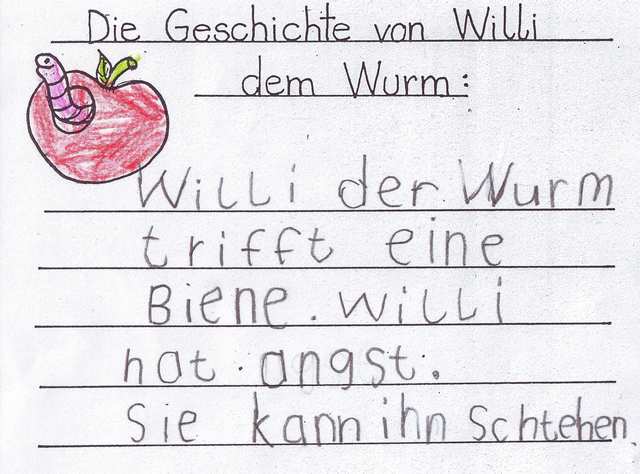 Die Geschichte von Willi
dem Wurm:
Willi der Wurm
trifft eine
Biene. Willi
hat angst.
Sie kann ihn Schtehen